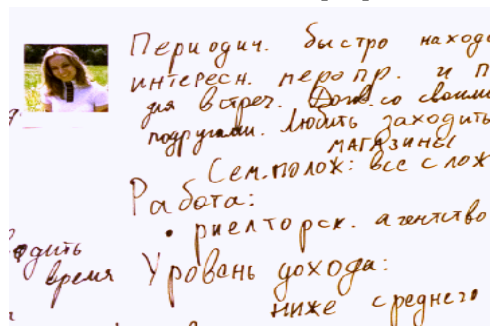 Периодич. быстро находи
интересн. меропр. и п
для встреч. Догов. со своими
подругами. Любить заходить
МАГАЗИНЫ
Сем. полож: все слож
Работа:
• риелторск. агентство
одить
время
Уровень дохода:
ниже среднего